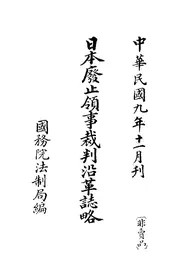 中華民國九年十一月刊
(非賣品)
日本廢止領事裁判沿革誌略
國務院法制局編